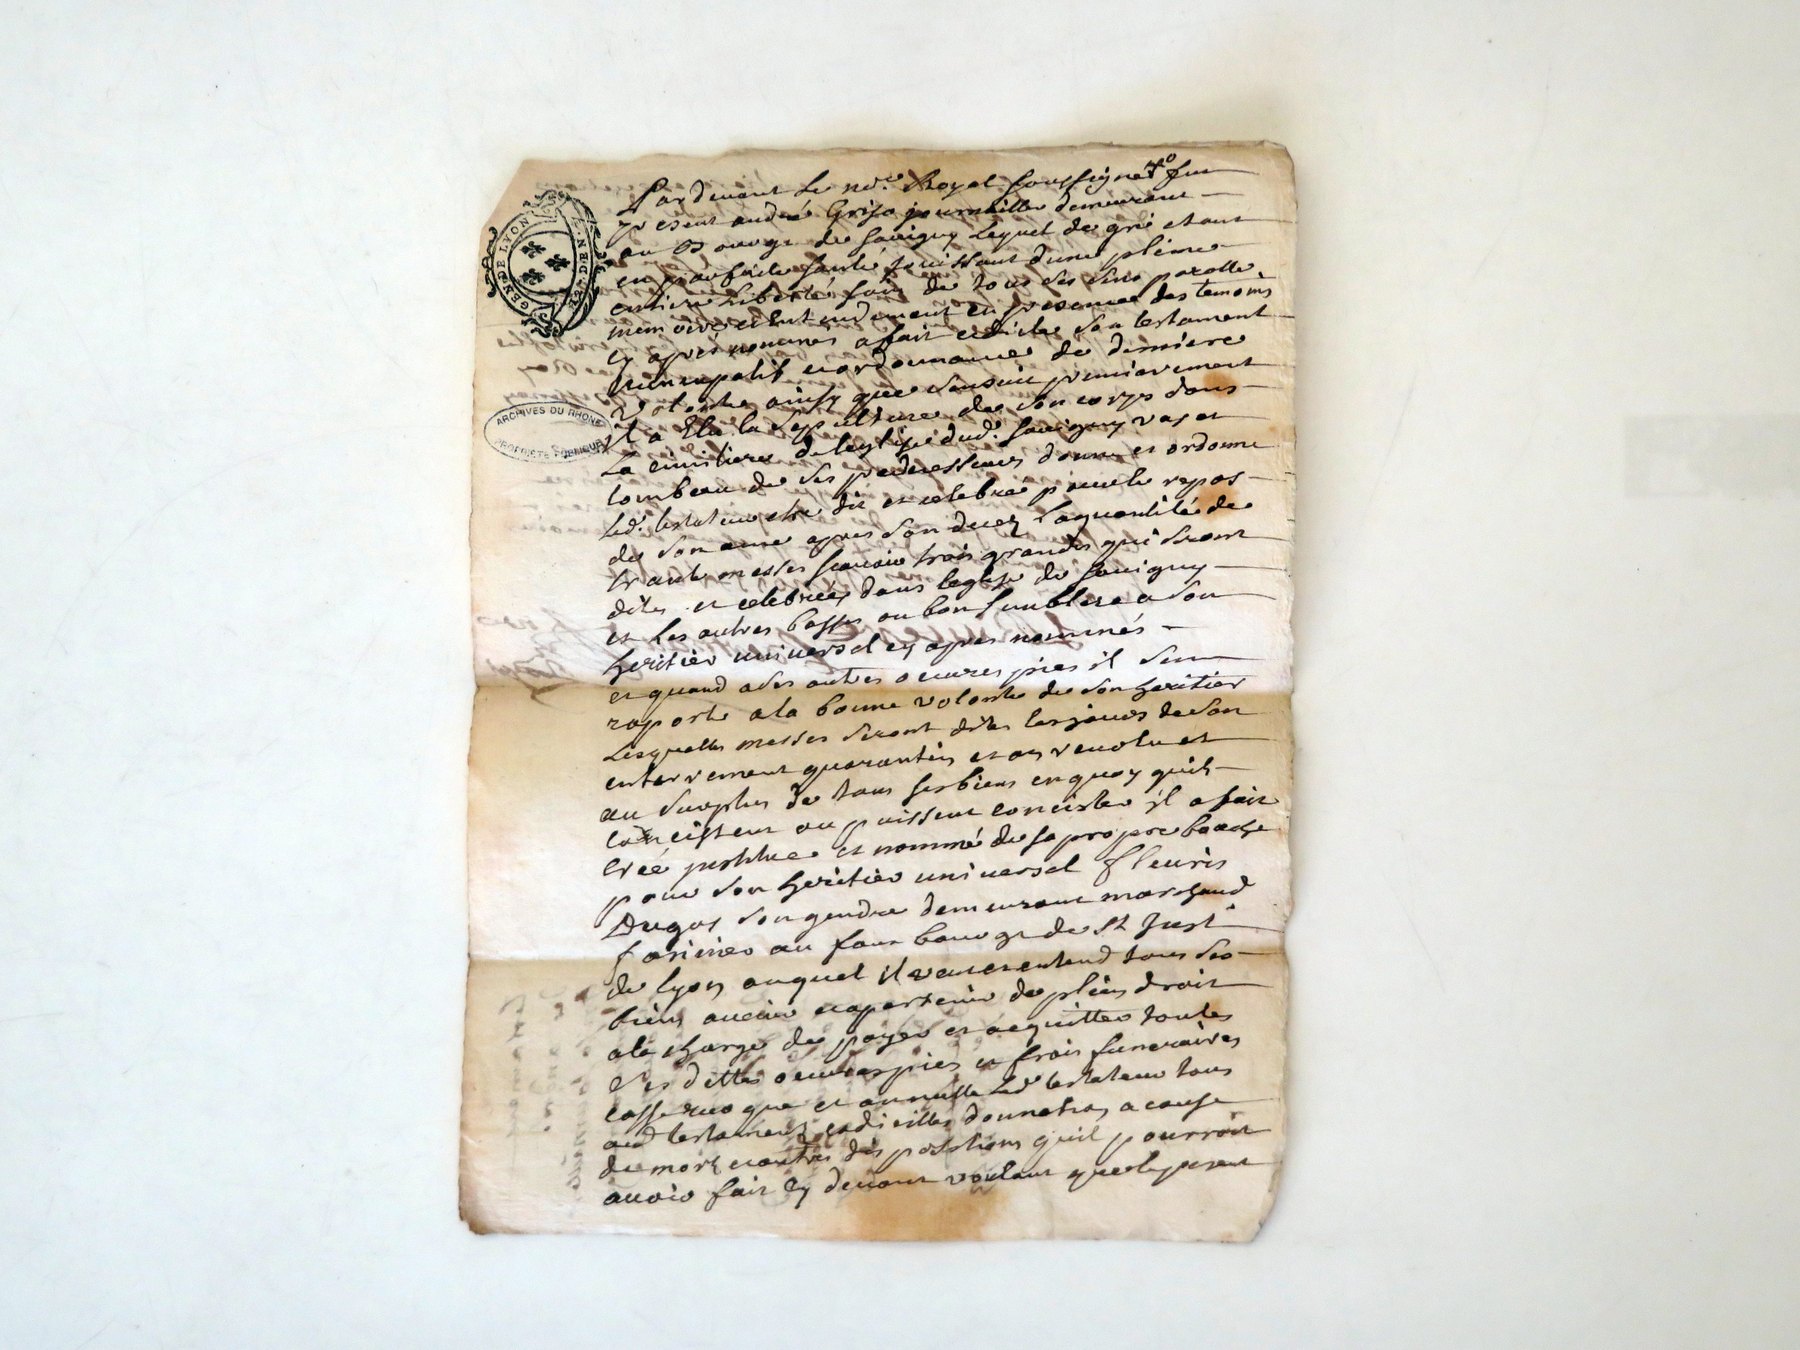 GEN. DE LYON
ARCHIVES DU RHONE
PROPRIÉTÉ PUBLIQUE
Pardevant Le no.re Royal soussigné fut
present andré Grisa journallier demeurant
au Bourge de savigny Lequel de gré etant
en parfaite santé jouissant dune pleine
entiere liberté sain de tous ses sens parolle
memoire et entendement en presence des temoins
cy après nommés a fait et dicte son testament
nuncupatif et ordonnance de derniere
volonté ainsy que sensuit premierement
il a Elu la Sepulture de son corps dans
La cimitiere de leglise dud. savigny vas et
tombeau de ses predecesseurs donne et ordonne
led. testateur etre dit et celebré pour le repos
de son ame apres son decez la quantité de
trante messes scavoir trois grandes qui seront
dites et celebrées dans leglise de savigny
et Les autres basses ou bon semblera a son
heritier universel cy apres nommés
et quand a ses autres oeuvres pies il sen
raporte a la bonne volonté de son heritier
Lesquelles messes seront dites les jours de son
enterrement quarantin et an revolu et
au surplus de tous ses biens en quoy quils
concistent ou puissent concister il a fait
creé jnstitue et nommé de sa propre bouche
pour son heritier universel fleuris
Dugas son gendre demeurant marchand
farinier au faux bourge de St Just
de lyon auquel il veut et entend tous ses
biens avenir et apartenir de plein droit
a la charge de payer et acquitter toutes
ses dettes oeuvres pies et frais funeraires
casse revoque et annulle led. testateur tous
aud testaments codicilles donnation a cause
de mort et autres dispositions quil pourroit
avoir fait cy devant voulant que le present